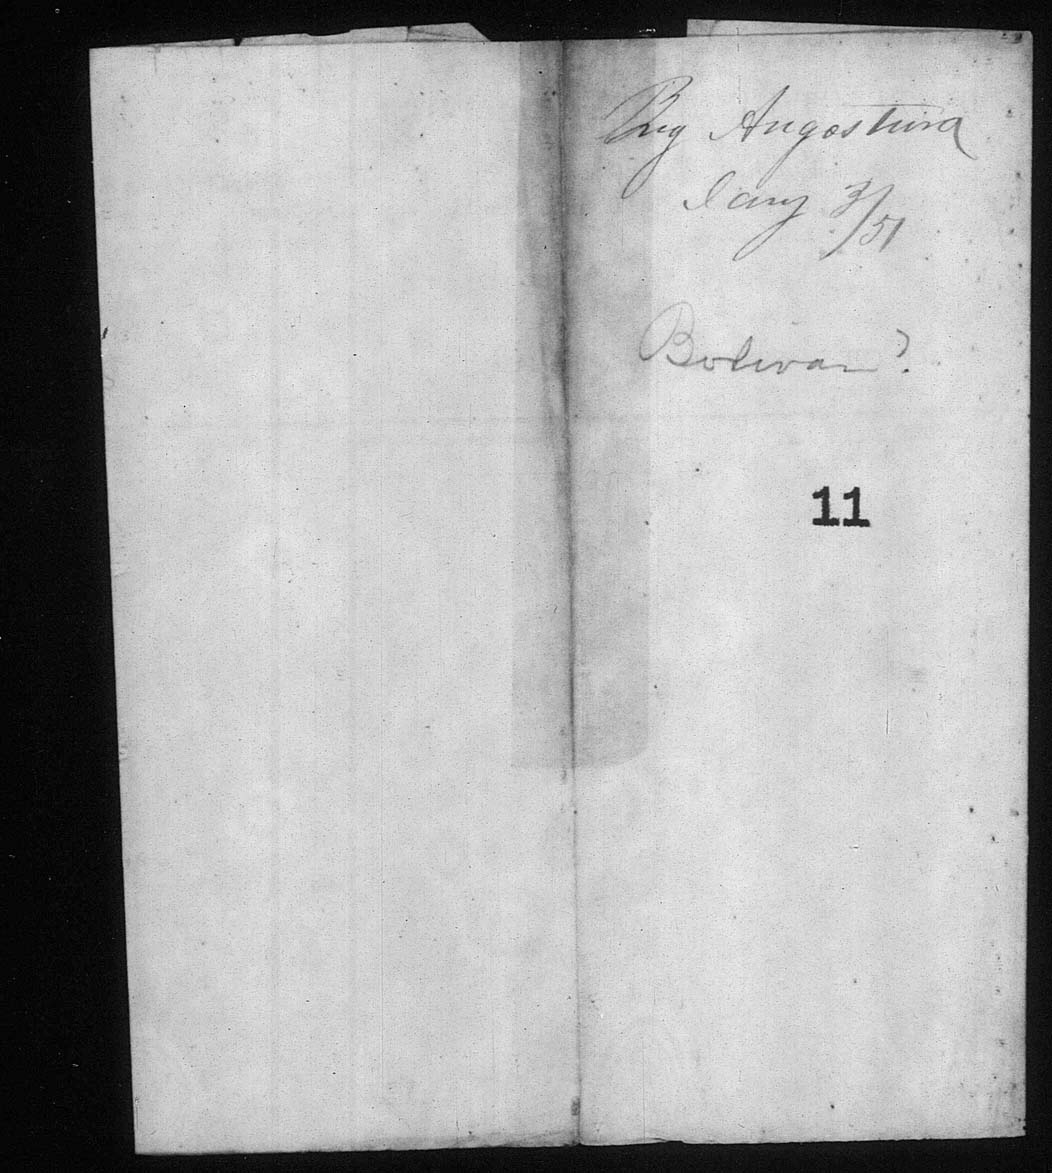 Brig Angostura
Jany 3/51
Bolivar?
11